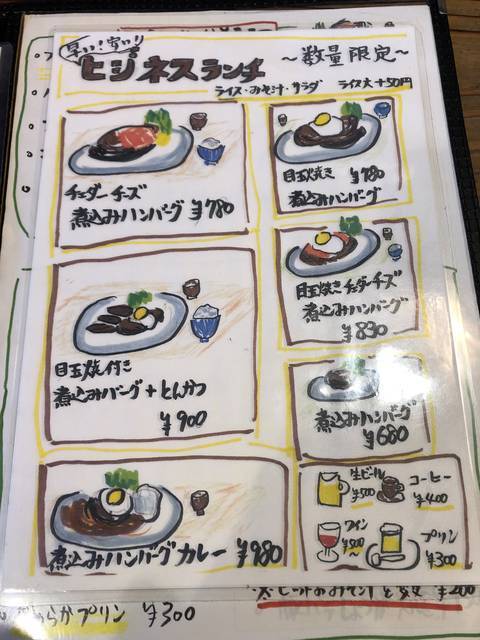 早い！安い！
ビジネスランチ
〜数量限定〜
ライス・みそ汁・サラダ ライス大+50円
チェダーチーズ
煮込みハンバーグ ¥780
目玉焼き ¥780
煮込みハンバーグ
目玉焼きチェダーチーズ
煮込みハンバーグ
¥830
目玉焼付き
煮込みバーグ+とんかつ
¥900
煮込みハンバーグ
¥680
煮込みハンバーグカレー ¥980
生ビール
¥500
コーヒー
¥400
ワイン
¥500〜
プリン
¥300
¥200
らかプリン ¥300